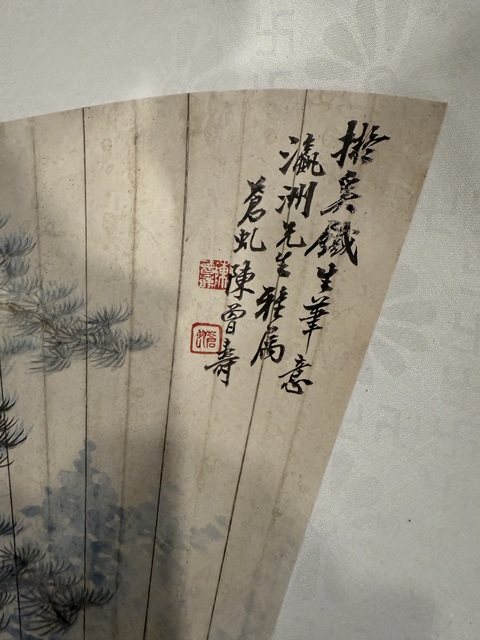 擬奚鐵生筆意
瀛洲先生雅屬
蒼虬陳曾壽